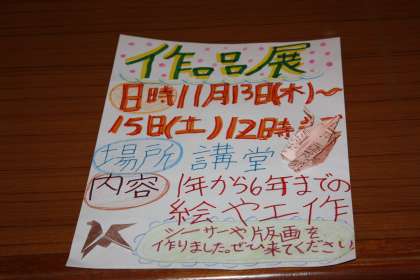 作品展
日時11月13日(木)～
15日(土)12時
場所 講堂
内容 1年から6年までの
絵や工作
シーサーや版画を
作りました。ぜひ来てください